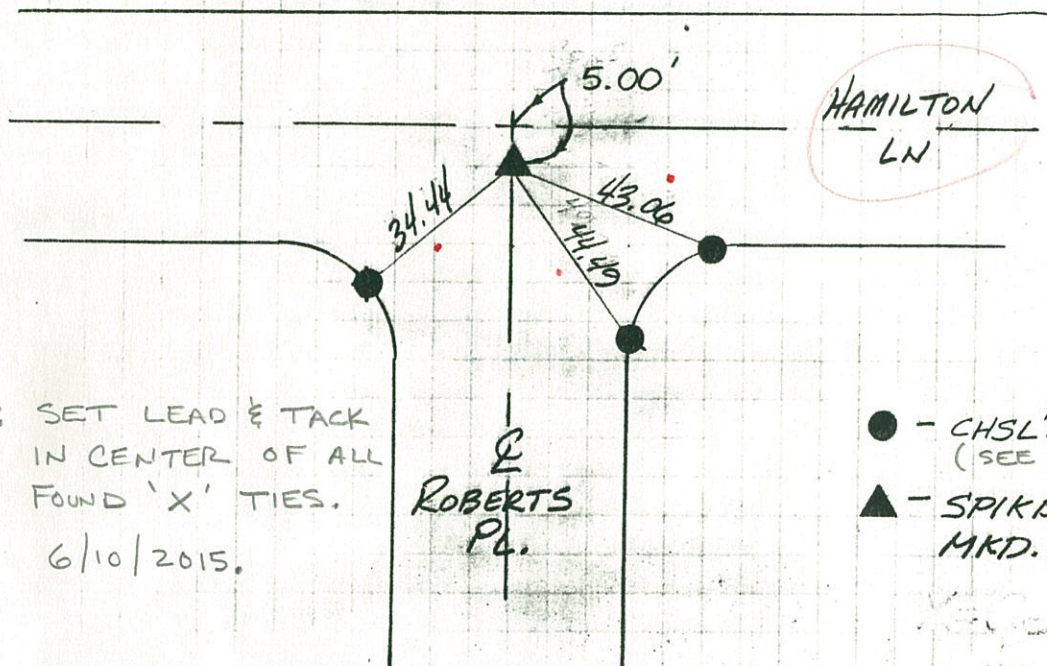 5.00'
HAMILTON
LN
34.44
43.06
44.49
SET LEAD & TACK
IN CENTER OF ALL
FOUND 'X' TIES.
6/10/2015.
℄
ROBERTS
PL.
● - CHSL'
(SEE
▲ - SPIK
MKD.